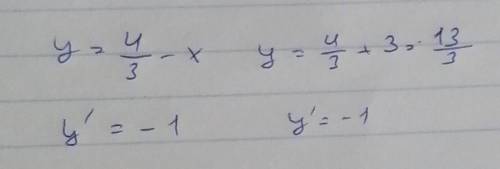 y = 4/3 - x   y = 4/3 + 3 = 13/3
y' = - 1   y' = - 1